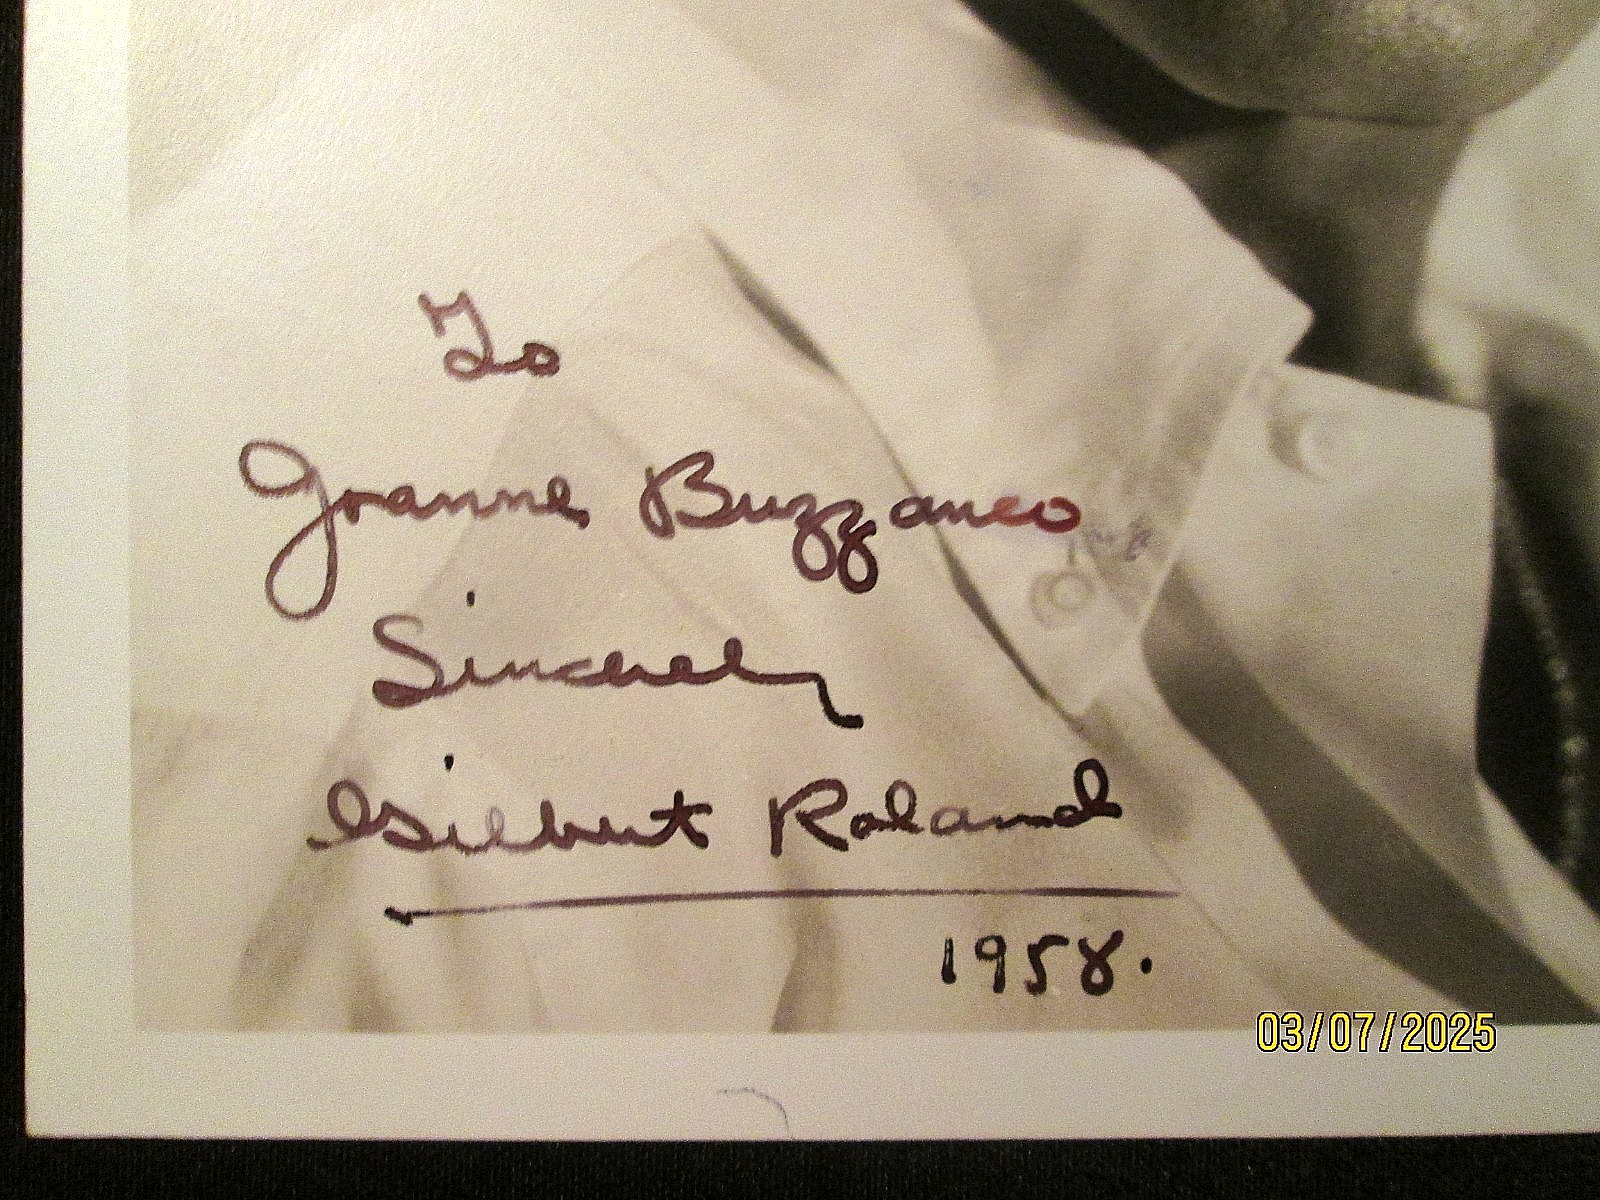 To
Joanne Buzzanco
Sincerely
Gilbert Roland
1958.
03/07/2025